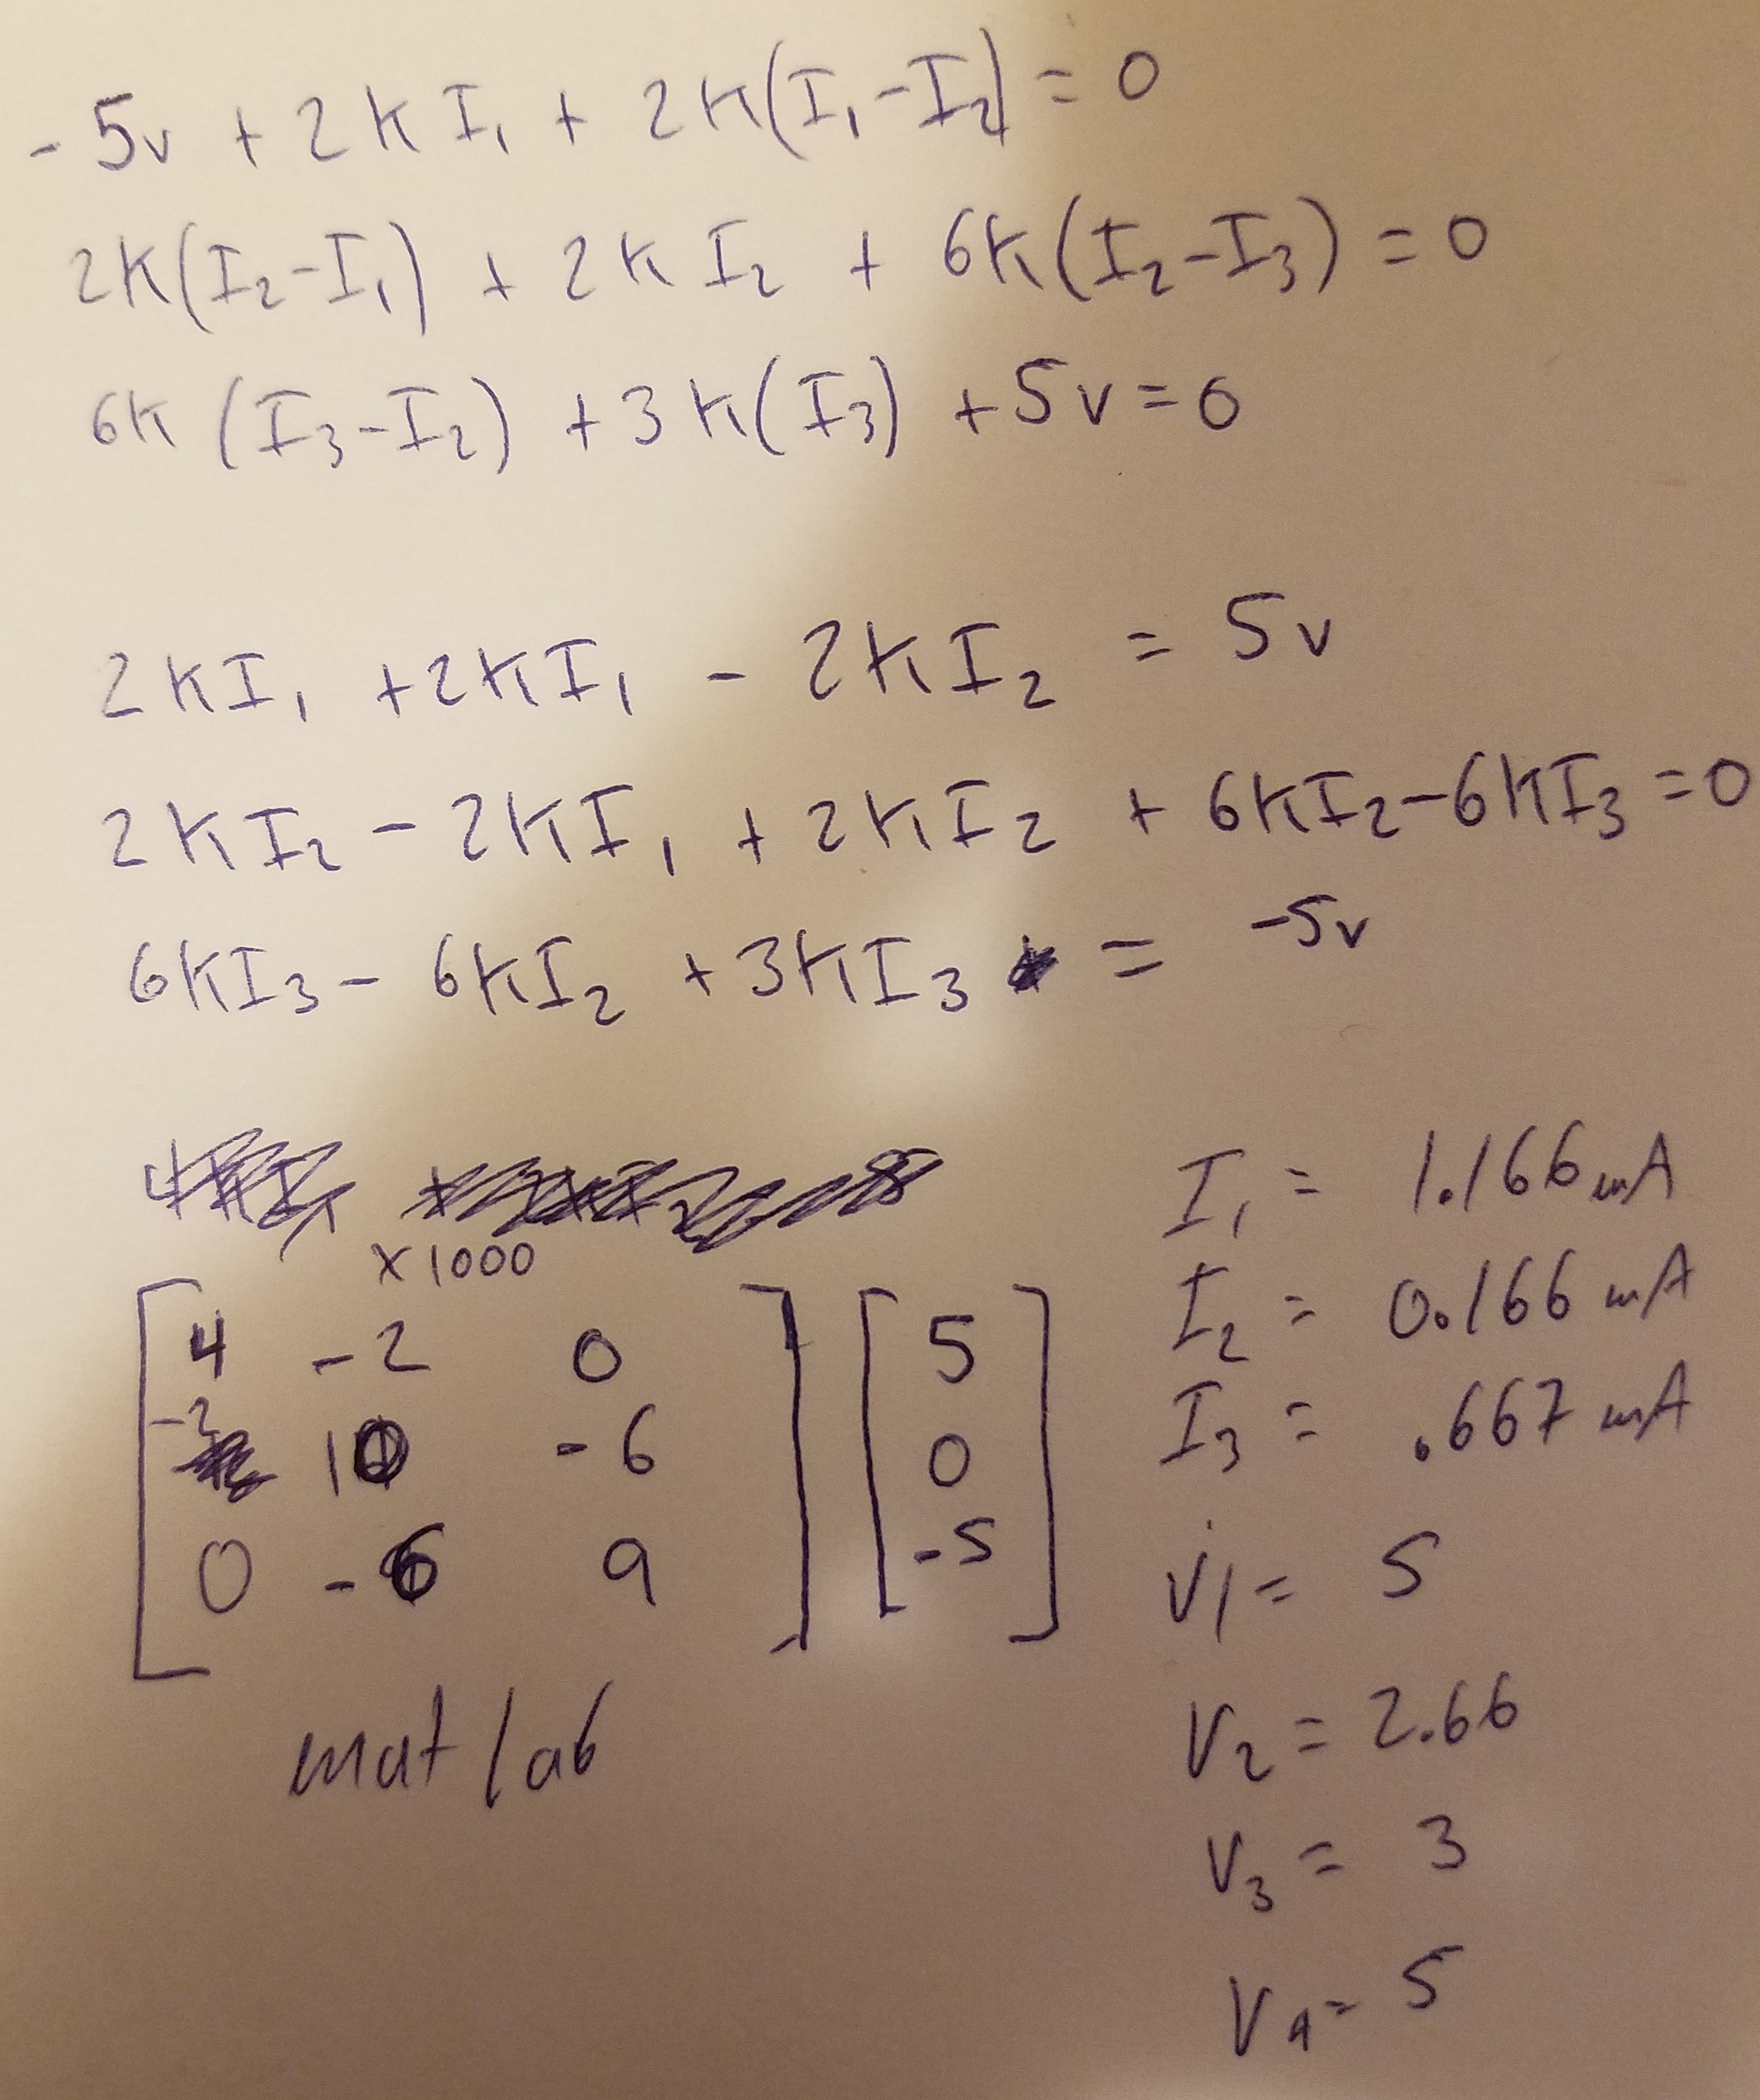 -5v + 2K I₁ + 2K(I₁-I₂) = 0
2K(I₂-I₁) + 2K I₂ + 6K(I₂-I₃) = 0
6K (I₃-I₂) +3K(I₃) +5v=0
2KI₁ +2KI₁ - 2KI₂ = 5v
2KI₂ - 2KI₁ + 2KI₂ + 6KI₂-6KI₃ =0
6KI₃ - 6KI₂ +3KI₃ = -5v
x1000
4 -2 0 5
-2 10 -6 0
0 -6 9 -5
matlab
I₁ = 1.166mA
I₂ = 0.166 mA
I₃ = .667 mA
V1= 5
V₂ = 2.66
V₃ = 3
V₄= 5